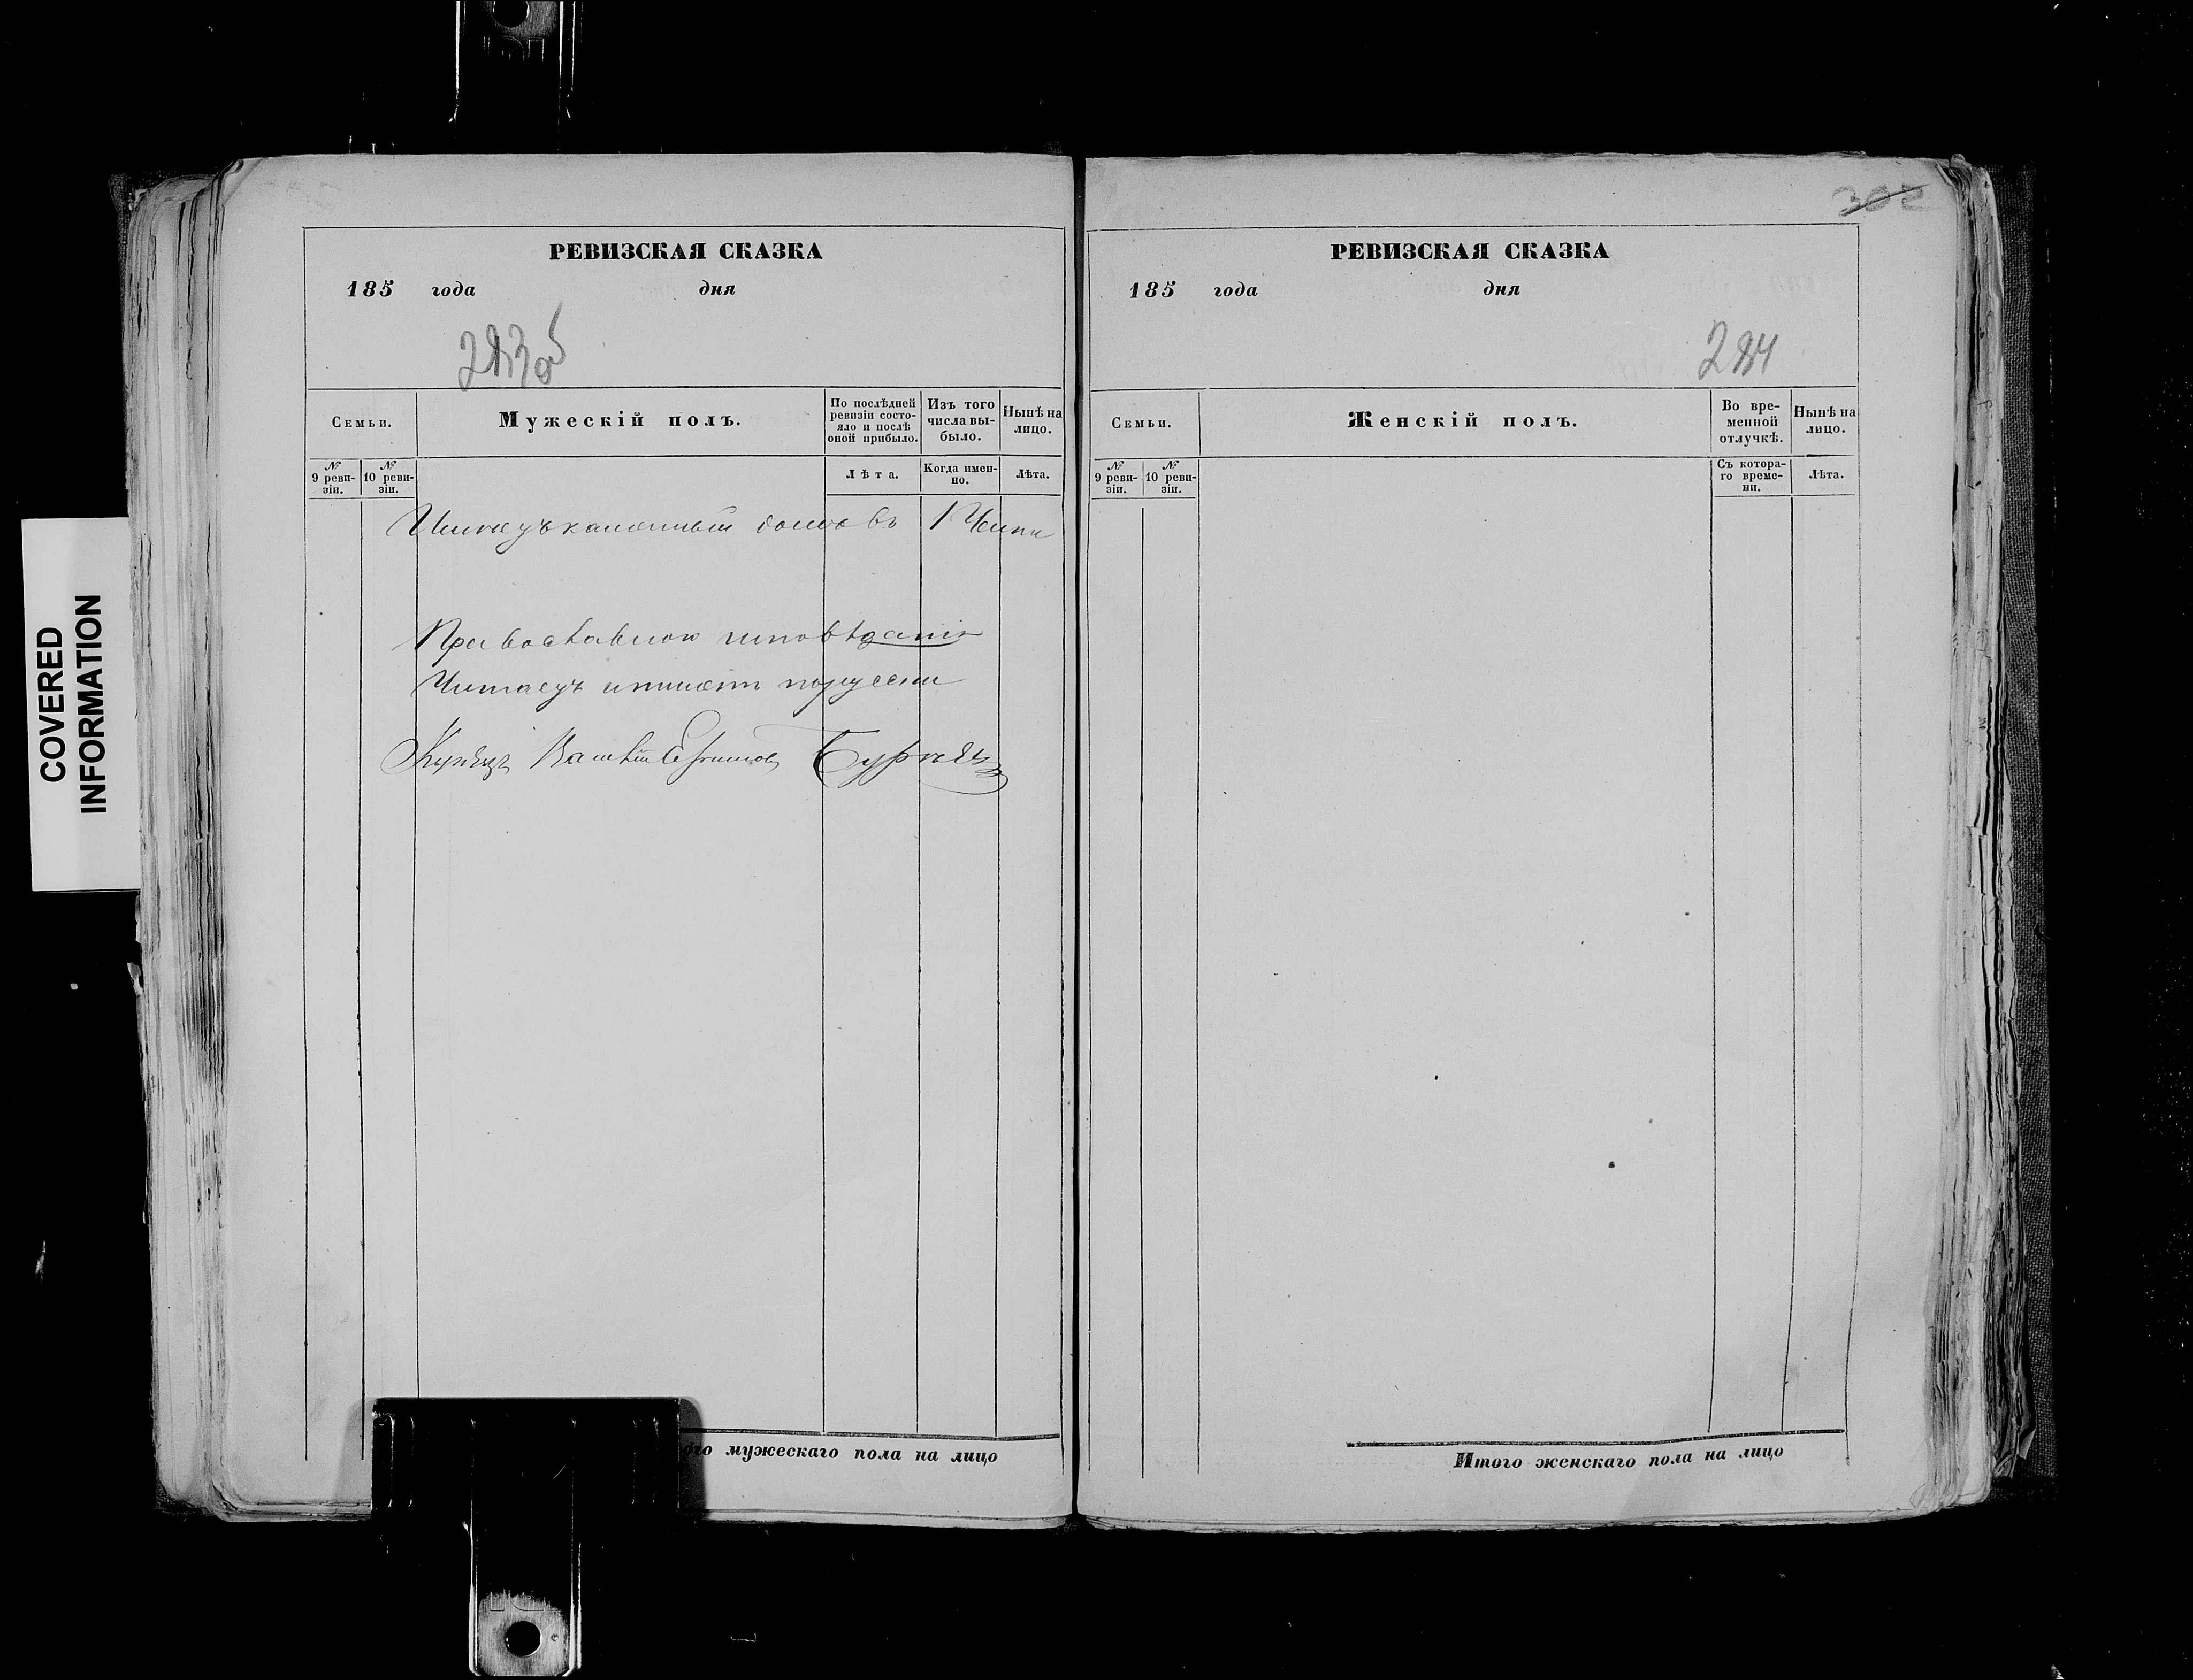 РЕВИЗСКАЯ СКАЗКА
185 года дня
283об
Семьи.
Мужескій полъ.
По послѣдней ревизіи состояло и послѣ оной прибыло.
Изъ того числа выбыло.
Нынѣ на лицо.
№ 9 ревизіи.
№ 10 ревизіи.
Лѣта.
Когда именно.
Лѣта.
Имеетъ каменный домъ въ 1 Части
Православнаго исповѣданія
Читаетъ и пишетъ по русски
Купецъ
COVERED
INFORMATION
мужескаго пола на лицо
302
РЕВИЗСКАЯ СКАЗКА
185 года дня
284
Семьи.
Женскій полъ.
Во временной отлучкѣ.
Нынѣ на лицо.
№ 9 ревизіи.
№ 10 ревизіи.
Съ котораго времени.
Лѣта.
Итого женскаго пола на лицо